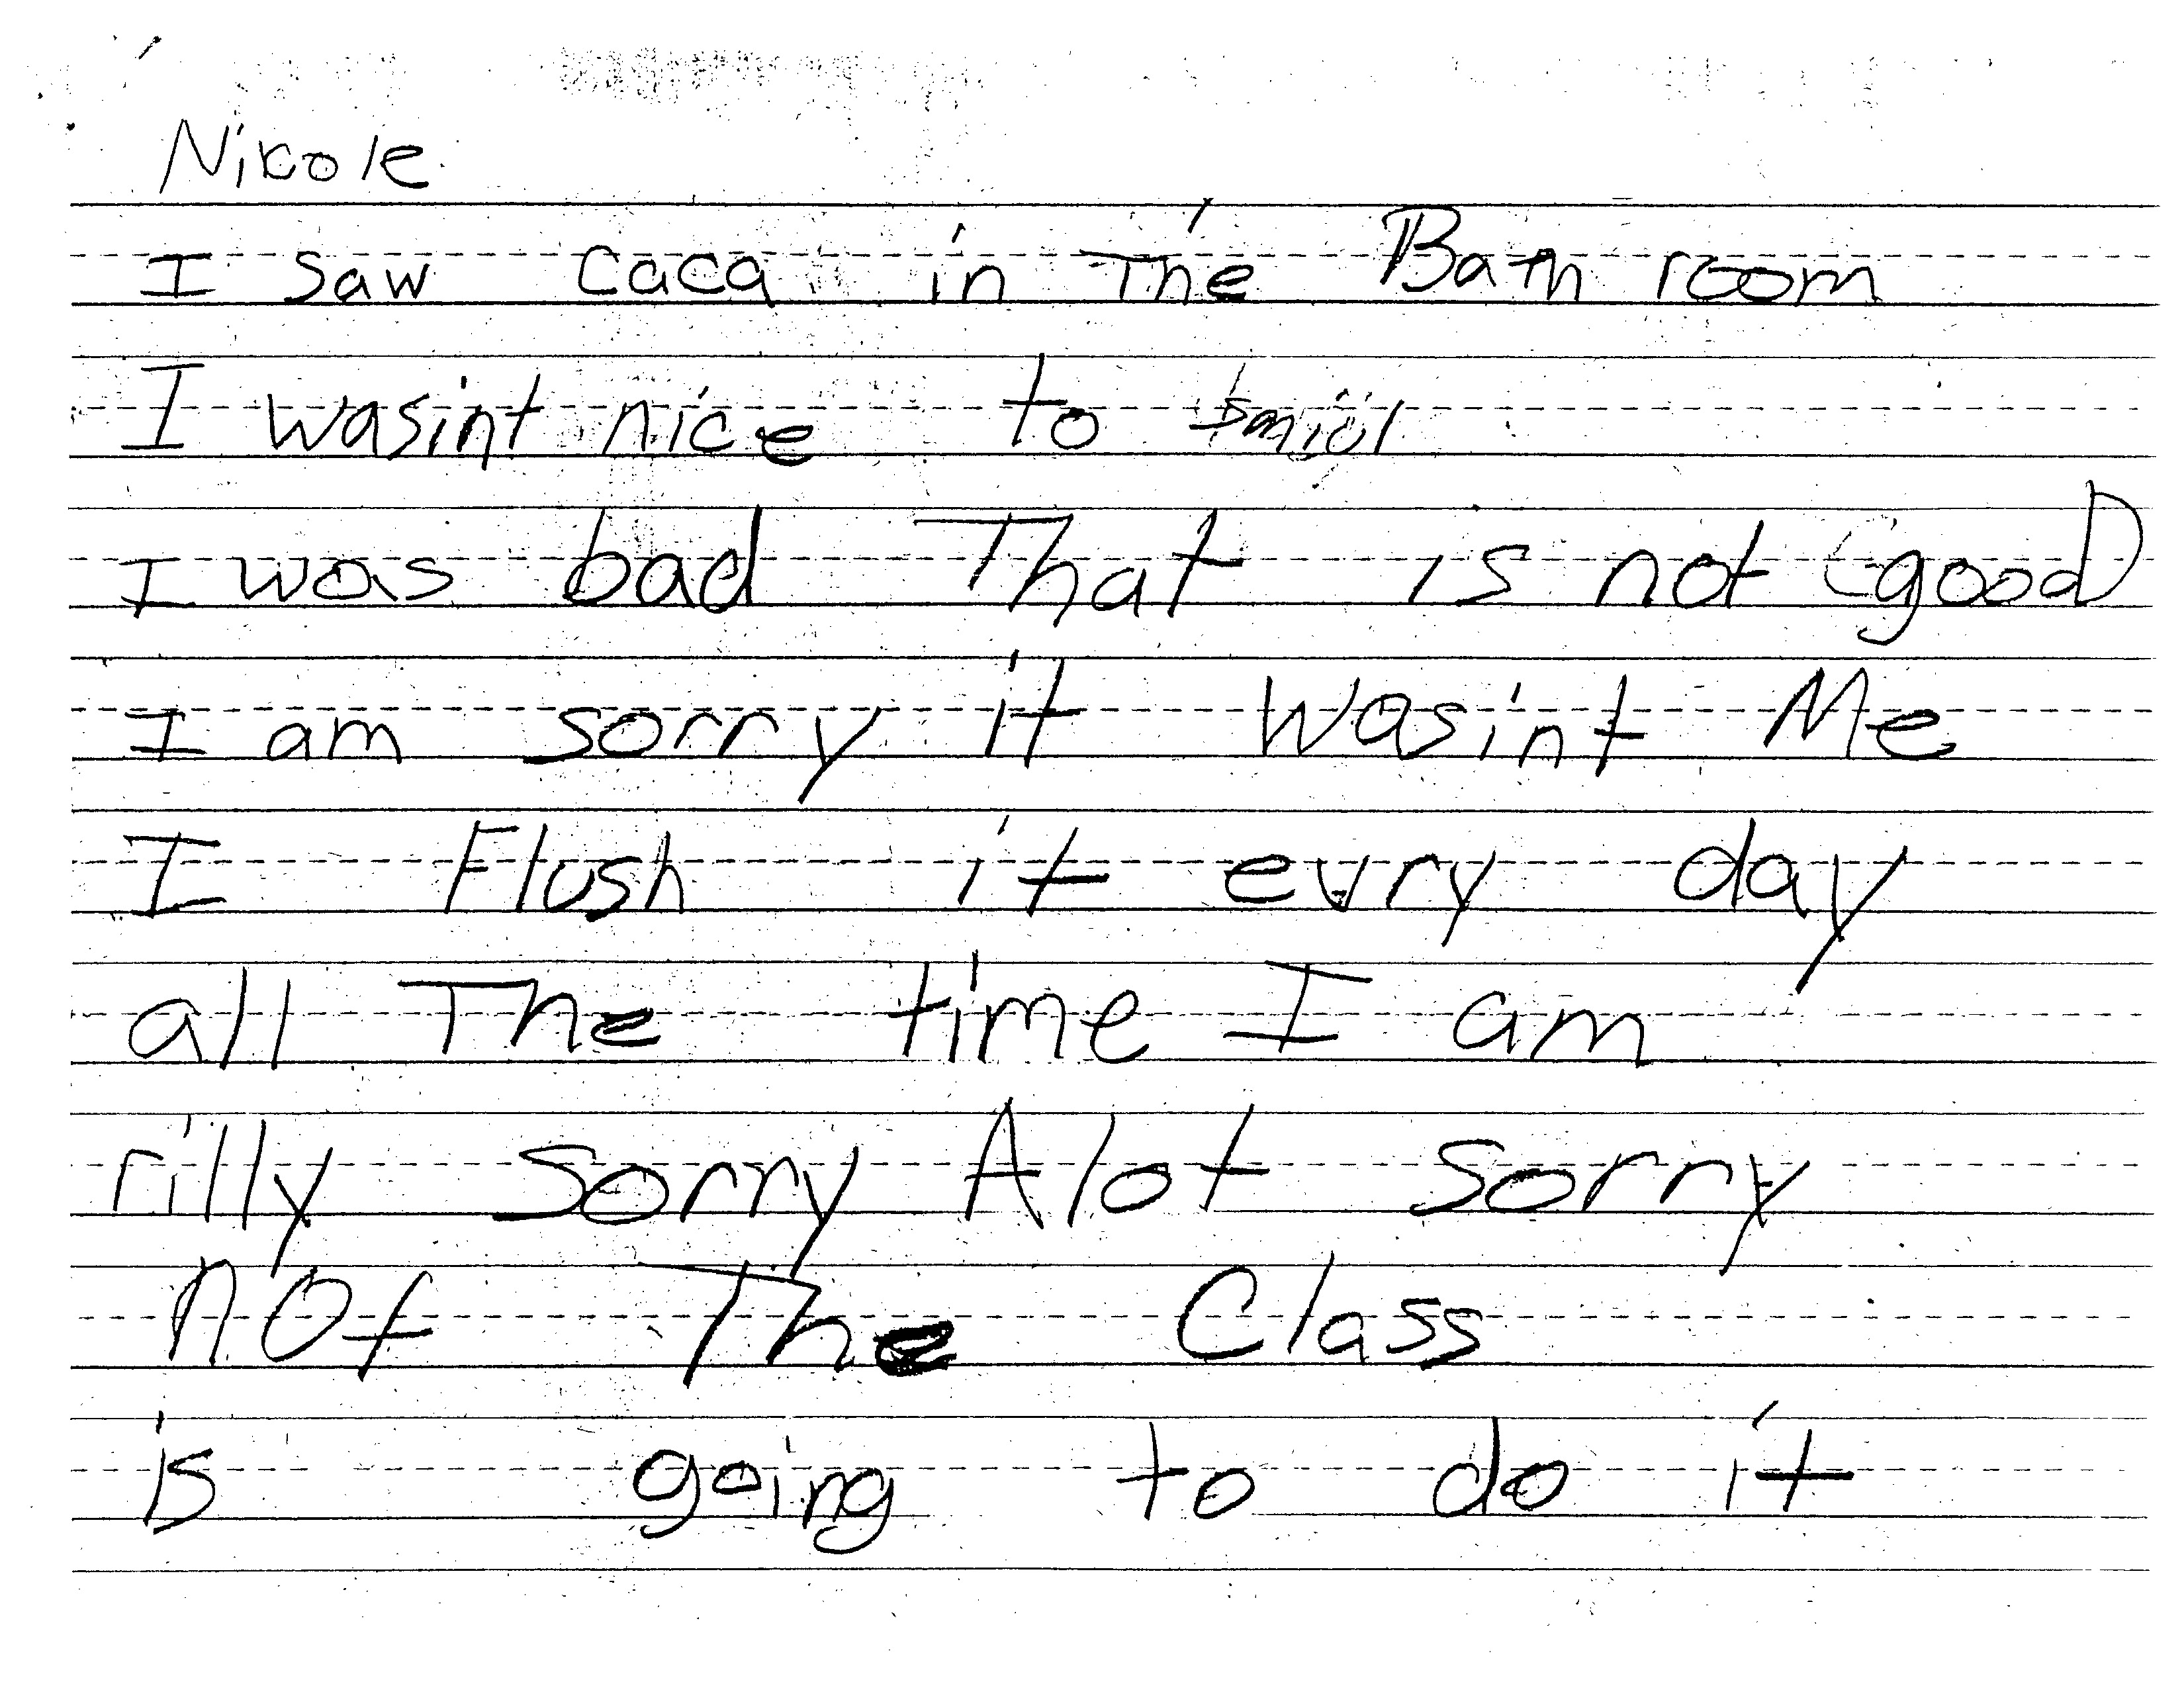 Nikole
I saw caca in The Bath room
I wasint nice to
I was bad That is not good
I am sorry it wasint Me
I Flush it evry day
all The time I am
rilly sorry Alot sorry
nOt The Class
is going to do it